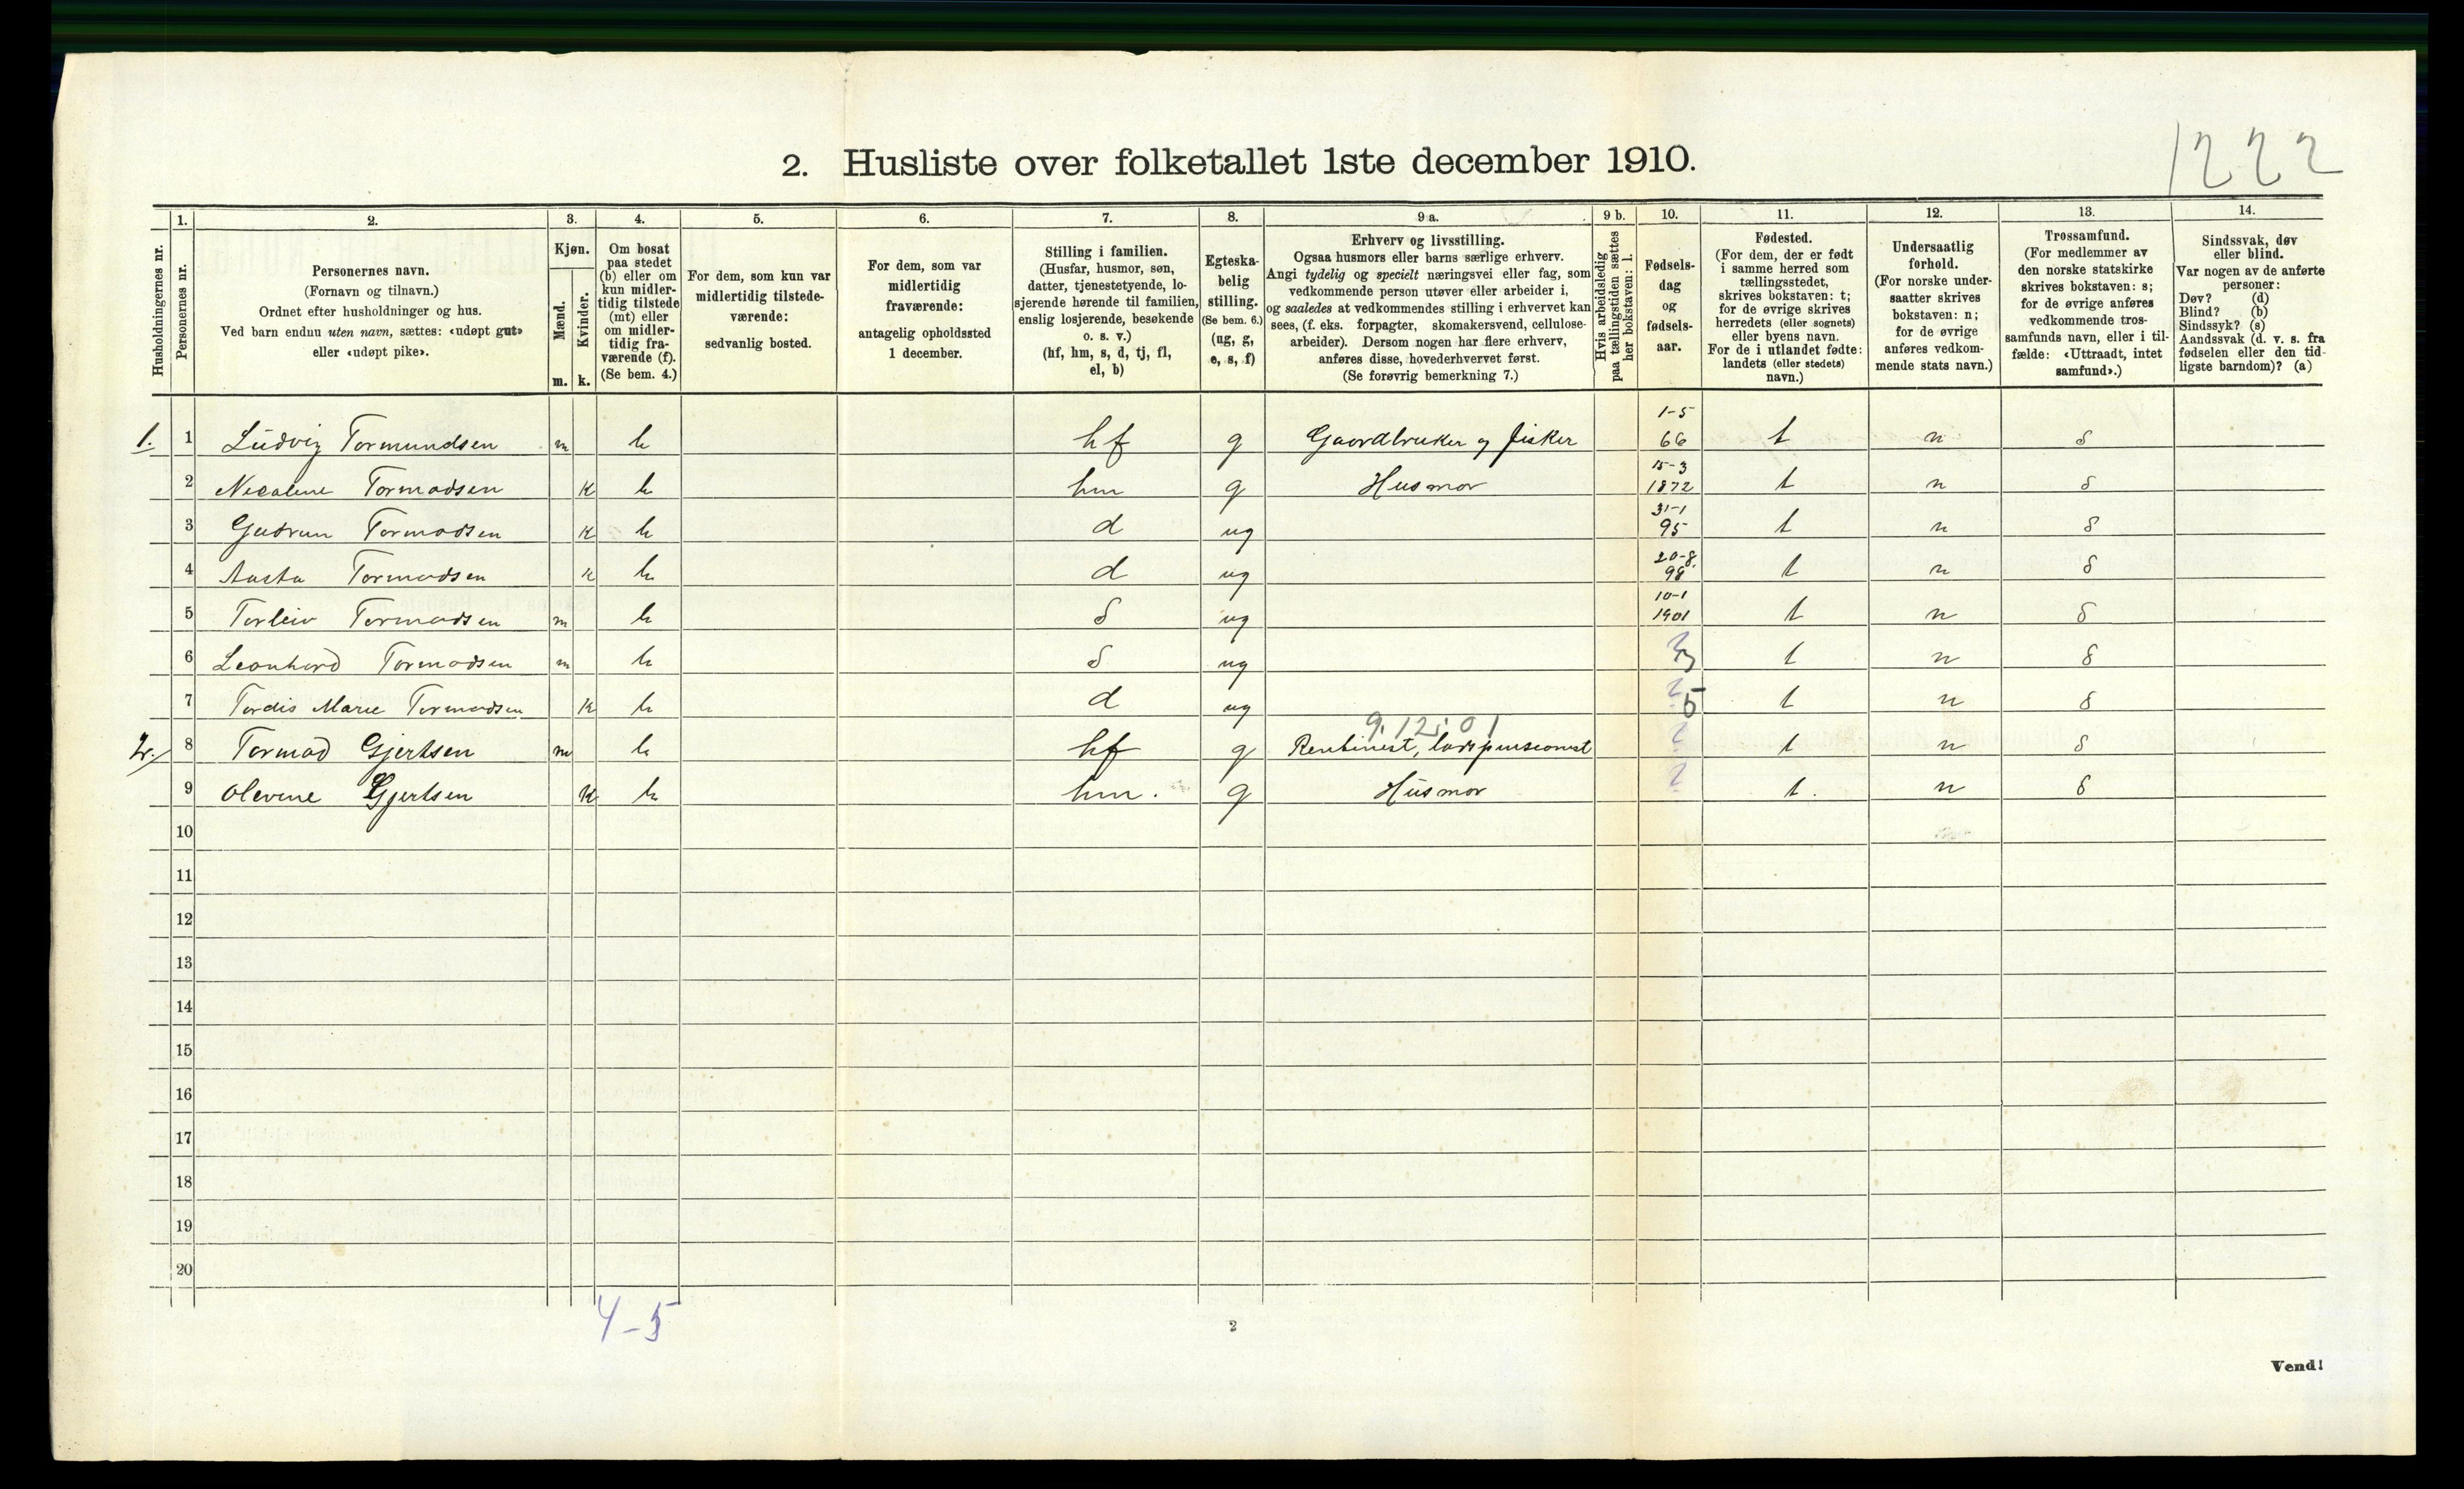 1222
2. Husliste over folketallet 1ste december 1910.
1. 2. 3. 4. 5. 6. 7. 8. 9 a. 9 b. 10. 11. 12. 13. 14.
Husholdningernes nr.
Personernes nr.
Personernes navn.
(Fornavn og tilnavn.)
Ordnet efter husholdninger og hus.
Ved barn endnu uten navn, sættes: «udøpt gut»
eller «udøpt pike».
Kjøn.
Mænd.
Kvinder.
m. k.
Om bosat
paa stedet
(b) eller om
kun midler-
tidig tilstede
(mt) eller
om midler-
tidig fra-
værende (f).
(Se bem. 4.)
For dem, som kun var
midlertidig tilstede-
værende:
sedvanlig bosted.
For dem, som var
midlertidig
fraværende:
antagelig opholdssted
1 december.
Stilling i familien.
(Husfar, husmor, søn,
datter, tjenestetyende, lo-
sjerende hørende til familien,
enslig losjerende, besøkende
o. s. v.)
(hf, hm, s, d, tj, fl,
el, b)
Egteska-
belig
stilling.
(Se bem. 6.)
(ug, g,
e, s, f)
Erhverv og livsstilling.
Ogsaa husmors eller barns særlige erhverv.
Angi tydelig og specielt næringsvei eller fag, som
vedkommende person utøver eller arbeider i,
og saaledes at vedkommendes stilling i erhvervet kan
sees, (f. eks. forpagter, skomakersvend, cellulose-
arbeider). Dersom nogen har flere erhverv,
anføres disse, hovederhvervet først.
(Se forøvrig bemerkning 7.)
Hvis arbeidsledig
paa tællingstiden sættes
her bokstaven: l.
Fødsels-
dag
og
fødsels-
aar.
Fødested.
(For dem, der er født
i samme herred som
tællingsstedet,
skrives bokstaven: t;
for de øvrige skrives
herredets (eller sognets)
eller byens navn.
For de i utlandet fødte:
landets (eller stedets)
navn.)
Undersaatlig
forhold.
(For norske under-
saatter skrives
bokstaven: n;
for de øvrige
anføres vedkom-
mende stats navn.)
Trossamfund.
(For medlemmer av
den norske statskirke
skrives bokstaven: s;
for de øvrige anføres
vedkommende tros-
samfunds navn, eller i til-
fælde: «Uttraadt, intet
samfund».)
Sindssvak, døv
eller blind.
Var nogen av de anførte
personer:
Døv? (d)
Blind? (b)
Sindssyk? (s)
Aandssvak (d. v. s. fra
fødselen eller den tid-
ligste barndom)? (a)
1. 1 Ludvig Tormundsen m b hf g Gaardbruker og fisker 1-5 66 t n s
2 Nicoline Tormodsen k b hm g Husmor 15-3 1872 t n s
3 Gudrun Tormodsen k b d ug 31-1 95 t n s
4 Aasta Tormodsen k b d ug 20-8. 98 t n s
5 Torleiv Tormodsen m b s ug 10-1 1901 t n s
6 Leonhard Tormodsen m b s ug ? 3 t n s
7 Tordis Marie Tormodsen k b d ug ? 5 t n s
9.12:01
2. 8 Tormod Gjertsen m b hf g Rentinest, lodspensionist ? t n s
9 Olevine Gjertsen k b hm. g Husmor ? t. n s
10
11
12
13
14
15
16
17
18
19
20
4-5
2
Vend!